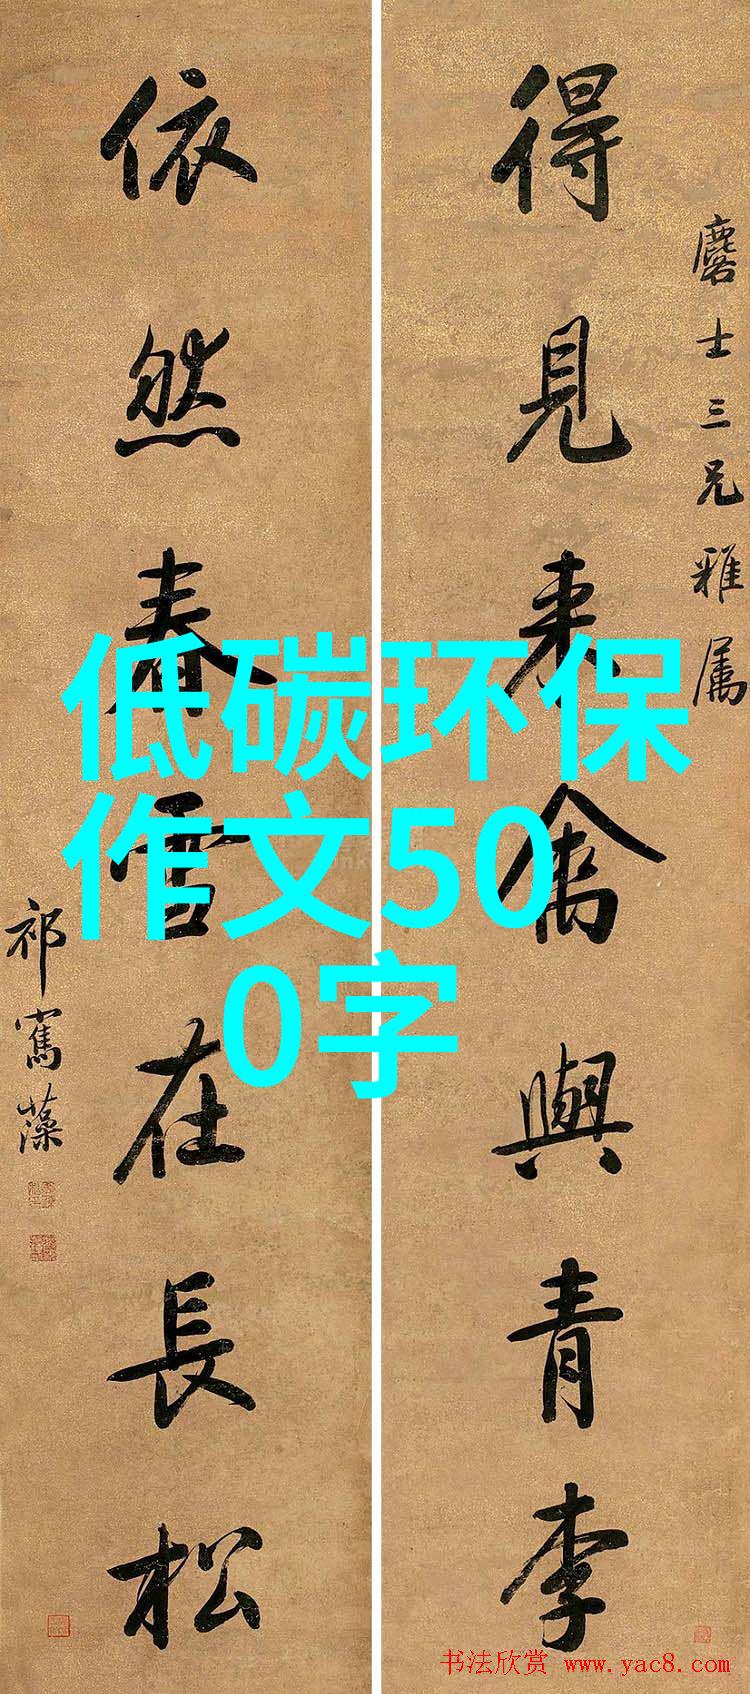 得見来禽與青李
麐士三兄雅属
依然春雪在長松
祁寯藻
低碳环保
作文50
0字
书法欣赏 www.yac8.com